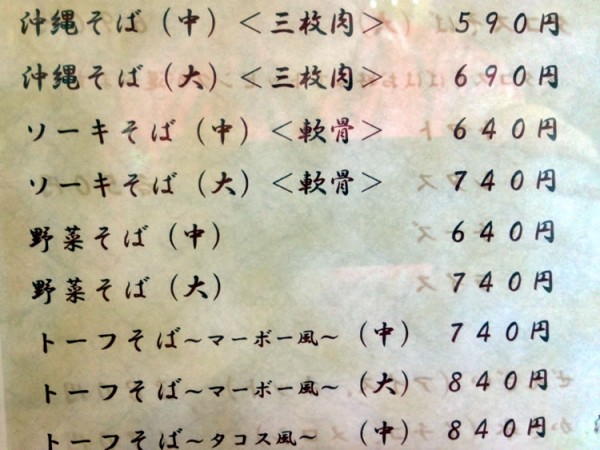 沖縄そば（中）＜三枚肉＞ 590円
沖縄そば（大）＜三枚肉＞ 690円
ソーキそば（中）＜軟骨＞ 640円
ソーキそば（大）＜軟骨＞ 740円
野菜そば（中） 640円
野菜そば（大） 740円
トーフそば～マーボー風～（中） 740円
トーフそば～マーボー風～（大） 840円
トーフそば～タコス風～（中） 840円